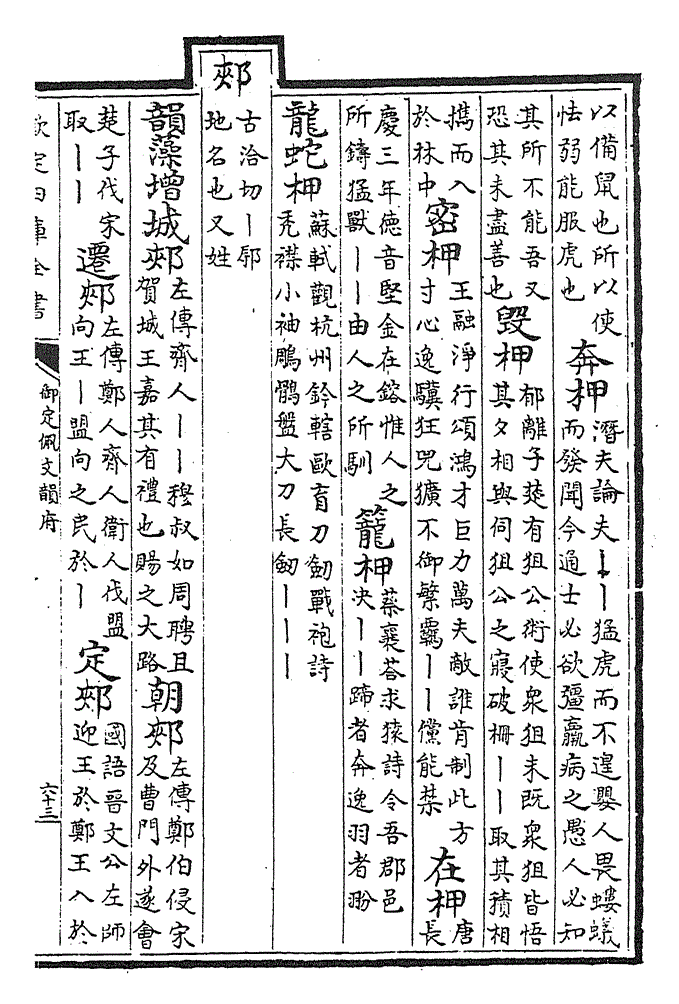 以備鼠也所以使
怯弱能服虎也
奔柙
潛夫論夫丨丨猛虎而不遑嬰人畏螻蟻
而發聞今通士必欲彊羸病之愚人必知
其所不能吾又
恐其未盡善也
毁柙
郁離子楚有狙公術使衆狙未既衆狙皆悟
其夕相與伺狙公之寢破柵丨丨取其積相
携而入
於林中
密柙
王融淨行頌鴻才巨力萬夫敵誰肯制此方
寸心逸驥狂兕獷不御繁羈丨丨儻能禁
在柙
唐
長
慶三年德音堅金在鎔惟人之
所鑄猛獸丨丨由人之所馴
籠柙
蔡襄荅求猿詩令吾郡邑
決丨丨蹄者奔逸羽者翂
龍蛇柙
蘇軾觀杭州鈐轄歐育刀劒戰袍詩
秃襟小袖鵰鶻盤大刀長劒丨丨丨
郟
古洽切丨郛
地名也又姓
韻藻增城郟
左傳齊人丨丨穆叔如周聘且
賀城王嘉其有禮也賜之大路
朝郟
左傳鄭伯侵宋
及曹門外遂會
楚子伐宋
取丨丨
遷郟
左傳鄭人齊人衛人伐盟
向王丨盟向之民於丨
定郟
國語晉文公左師
迎王於鄭王入於
欽定四庫全書
御定佩文韻府
六十三